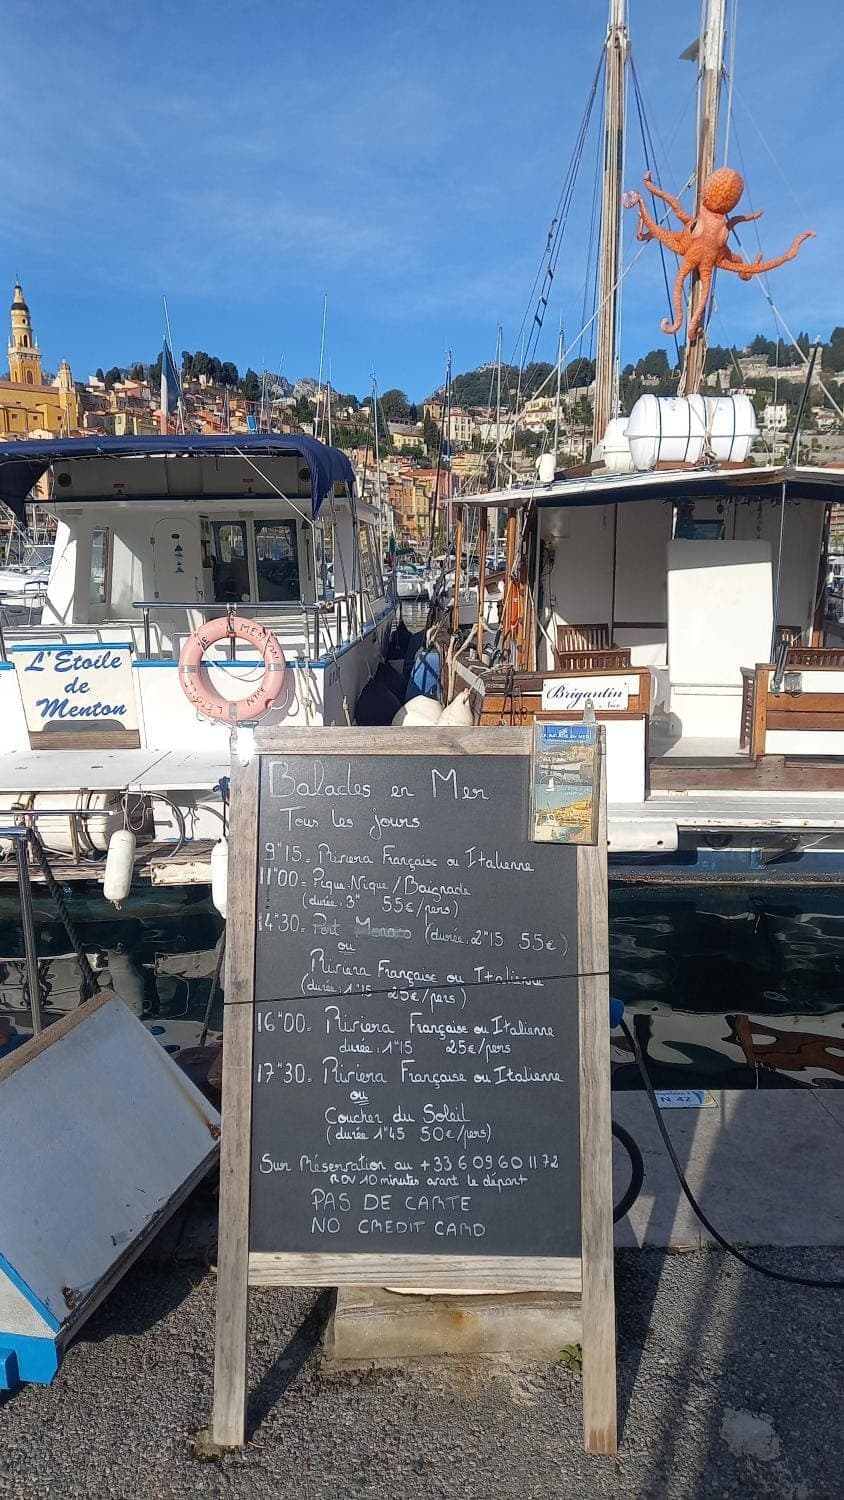 L'Etoile
de
Menton
DE MENTON
Brigantin
Nice
Balades en Mer
Tous les jours
9H15 = Riviera Française ou Italienne
11H00 = Pique-Nique / Baignade
(durée : 3H 55€/pers)
14H30 = Port Monaco (durée : 2H15 55€)
ou
Riviera Française ou Italienne
(durée : 1H15 25€/pers)
16H00 = Riviera Française ou Italienne
durée : 1H15 25€/pers
17H30 = Riviera Française ou Italienne
ou
Coucher du Soleil
(durée 1H45 50€/pers)
Sur Réservation au +33 6 09 60 11 72
RDV 10 minutes avant le départ
PAS DE CARTE
NO CREDIT CARD
N 42